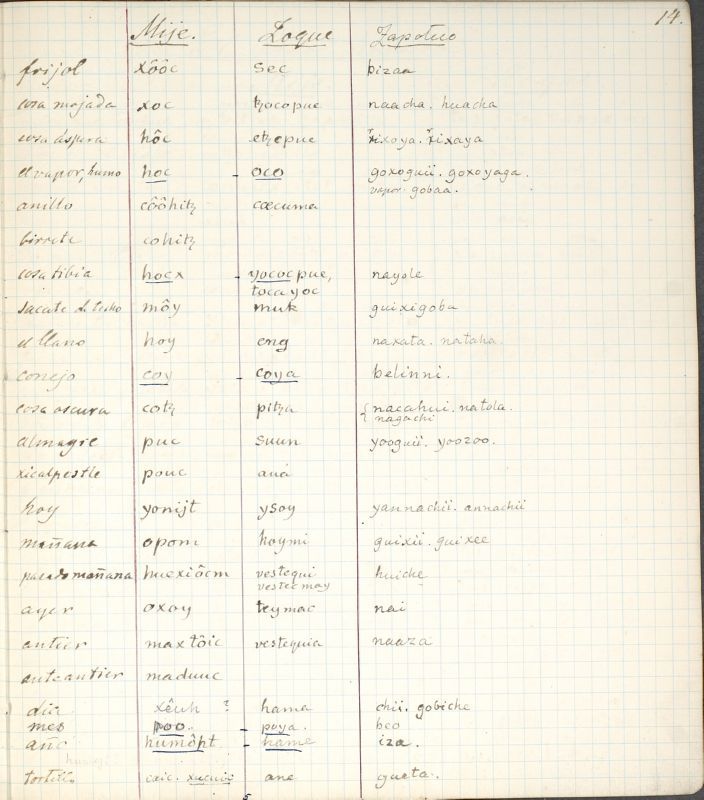 14.
Mije. Zoque Zapoteco
frijol xôôc sec bizaa
cosa mojada xoc tzocopue naacha. huacha
cosa áspera hôc etzepue xixoya. xixaya
el vapor, humo hoc - oco goxoguii. goxoyaga.
vapor. gobaa.
anillo côôhitz cœcuma
birrete cohitz
cosa tibia hocx - yococpue, nayole
tocayoc
sacate de techo môy muk guixigoba
el llano hoy eng naxata. nataha.
conejo coy - coya belinni.
cosa oscura cotz pitza { nacahui. natola.
nagachi
almagre puc suun yooguii. yoozoo.
xicalpestle pouc aná
hoy yonijt ysoy yannachii. annachii
mañana opom hoymi guixii. guixee
pasado mañana huexiôcm vestequi huiche
vestec may
ayer oxoy teymac nai
antier maxtôic vestequia naaza
anteantier maduuc
dia xêuh ? hama chii. gobiche
mes poo.. - poya. beo
año humôpt - hame iza.
caic. ane gueta.
5